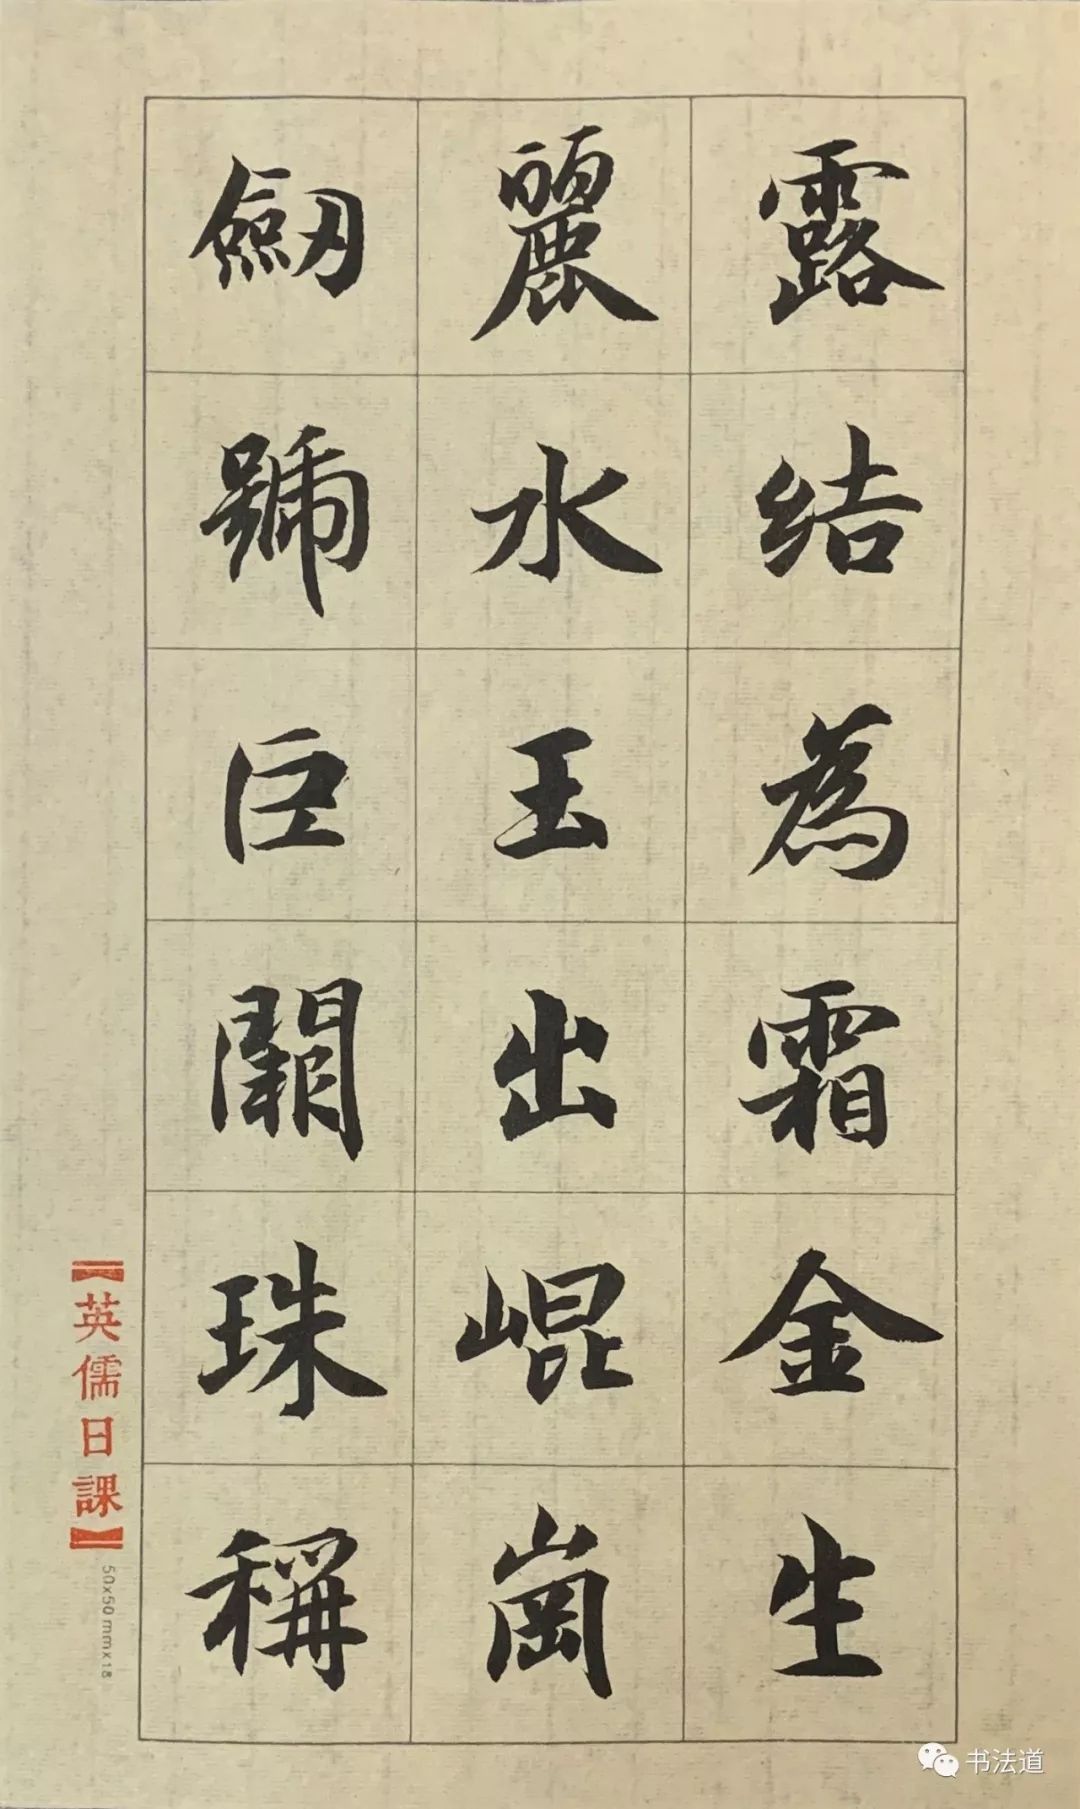 露結為霜金生
麗水玉出崐崗
劒號巨闕珠稱
【英儒日課】
50x50mmx18
书法道